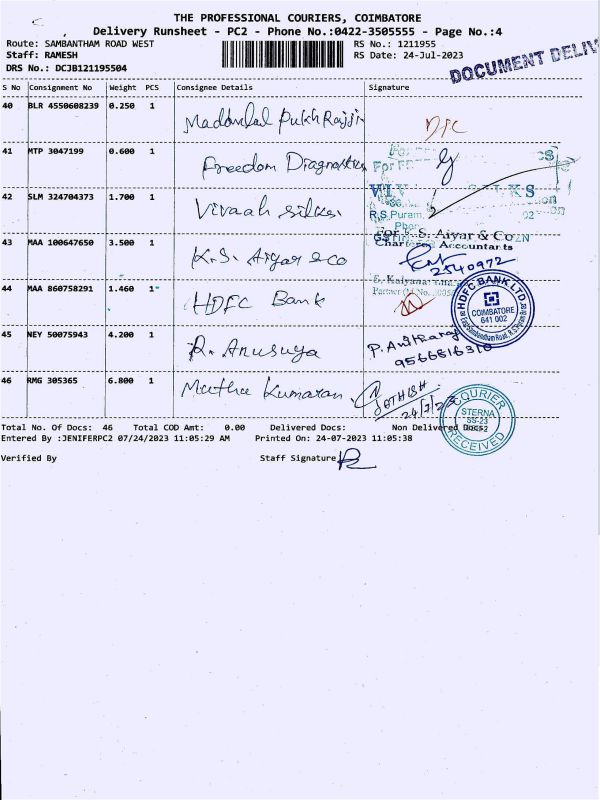 THE PROFESSIONAL COURIERS, COIMBATORE
Delivery Runsheet - PC2 - Phone No.:0422-3505555 - Page No.:4
Route: SAMBANTHAM ROAD WEST RS No.: 1211955
Staff: RAMESH RS Date: 24-Jul-2023
DRS No.: DCJB121195504
DOCUMENT DELIV
S No Consignment No Weight PCS Consignee Details Signature
40 BLR 4550608239 0.250 1 Madanlal Pukh Rajji
41 MTP 3047199 0.600 1 Freedom Diagnostics
42 SLM 324704373 1.700 1 Vivaah silks
R.S.Puram,
43 MAA 100647650 3.500 1 K.S. Aiyar & co
For K.S. Aiyar & Co
Chartered Accountants
2540972
44 MAA 860758291 1.460 1 HDFC Bank
HDFC BANK LTD.
COIMBATORE
641 002
45 NEY 50075943 4.200 1 R. Anusuya
9566616310
46 RMG 305365 6.800 1 Muthu Kumaran
24/7/23
COURIER
STERNA
SS-23
RECEIVED
Total No. Of Docs: 46 Total COD Amt: 0.00 Delivered Docs: Non Delivered Docs:
Entered By :JENIFERPC2 07/24/2023 11:05:29 AM Printed On: 24-07-2023 11:05:38
Verified By Staff Signature